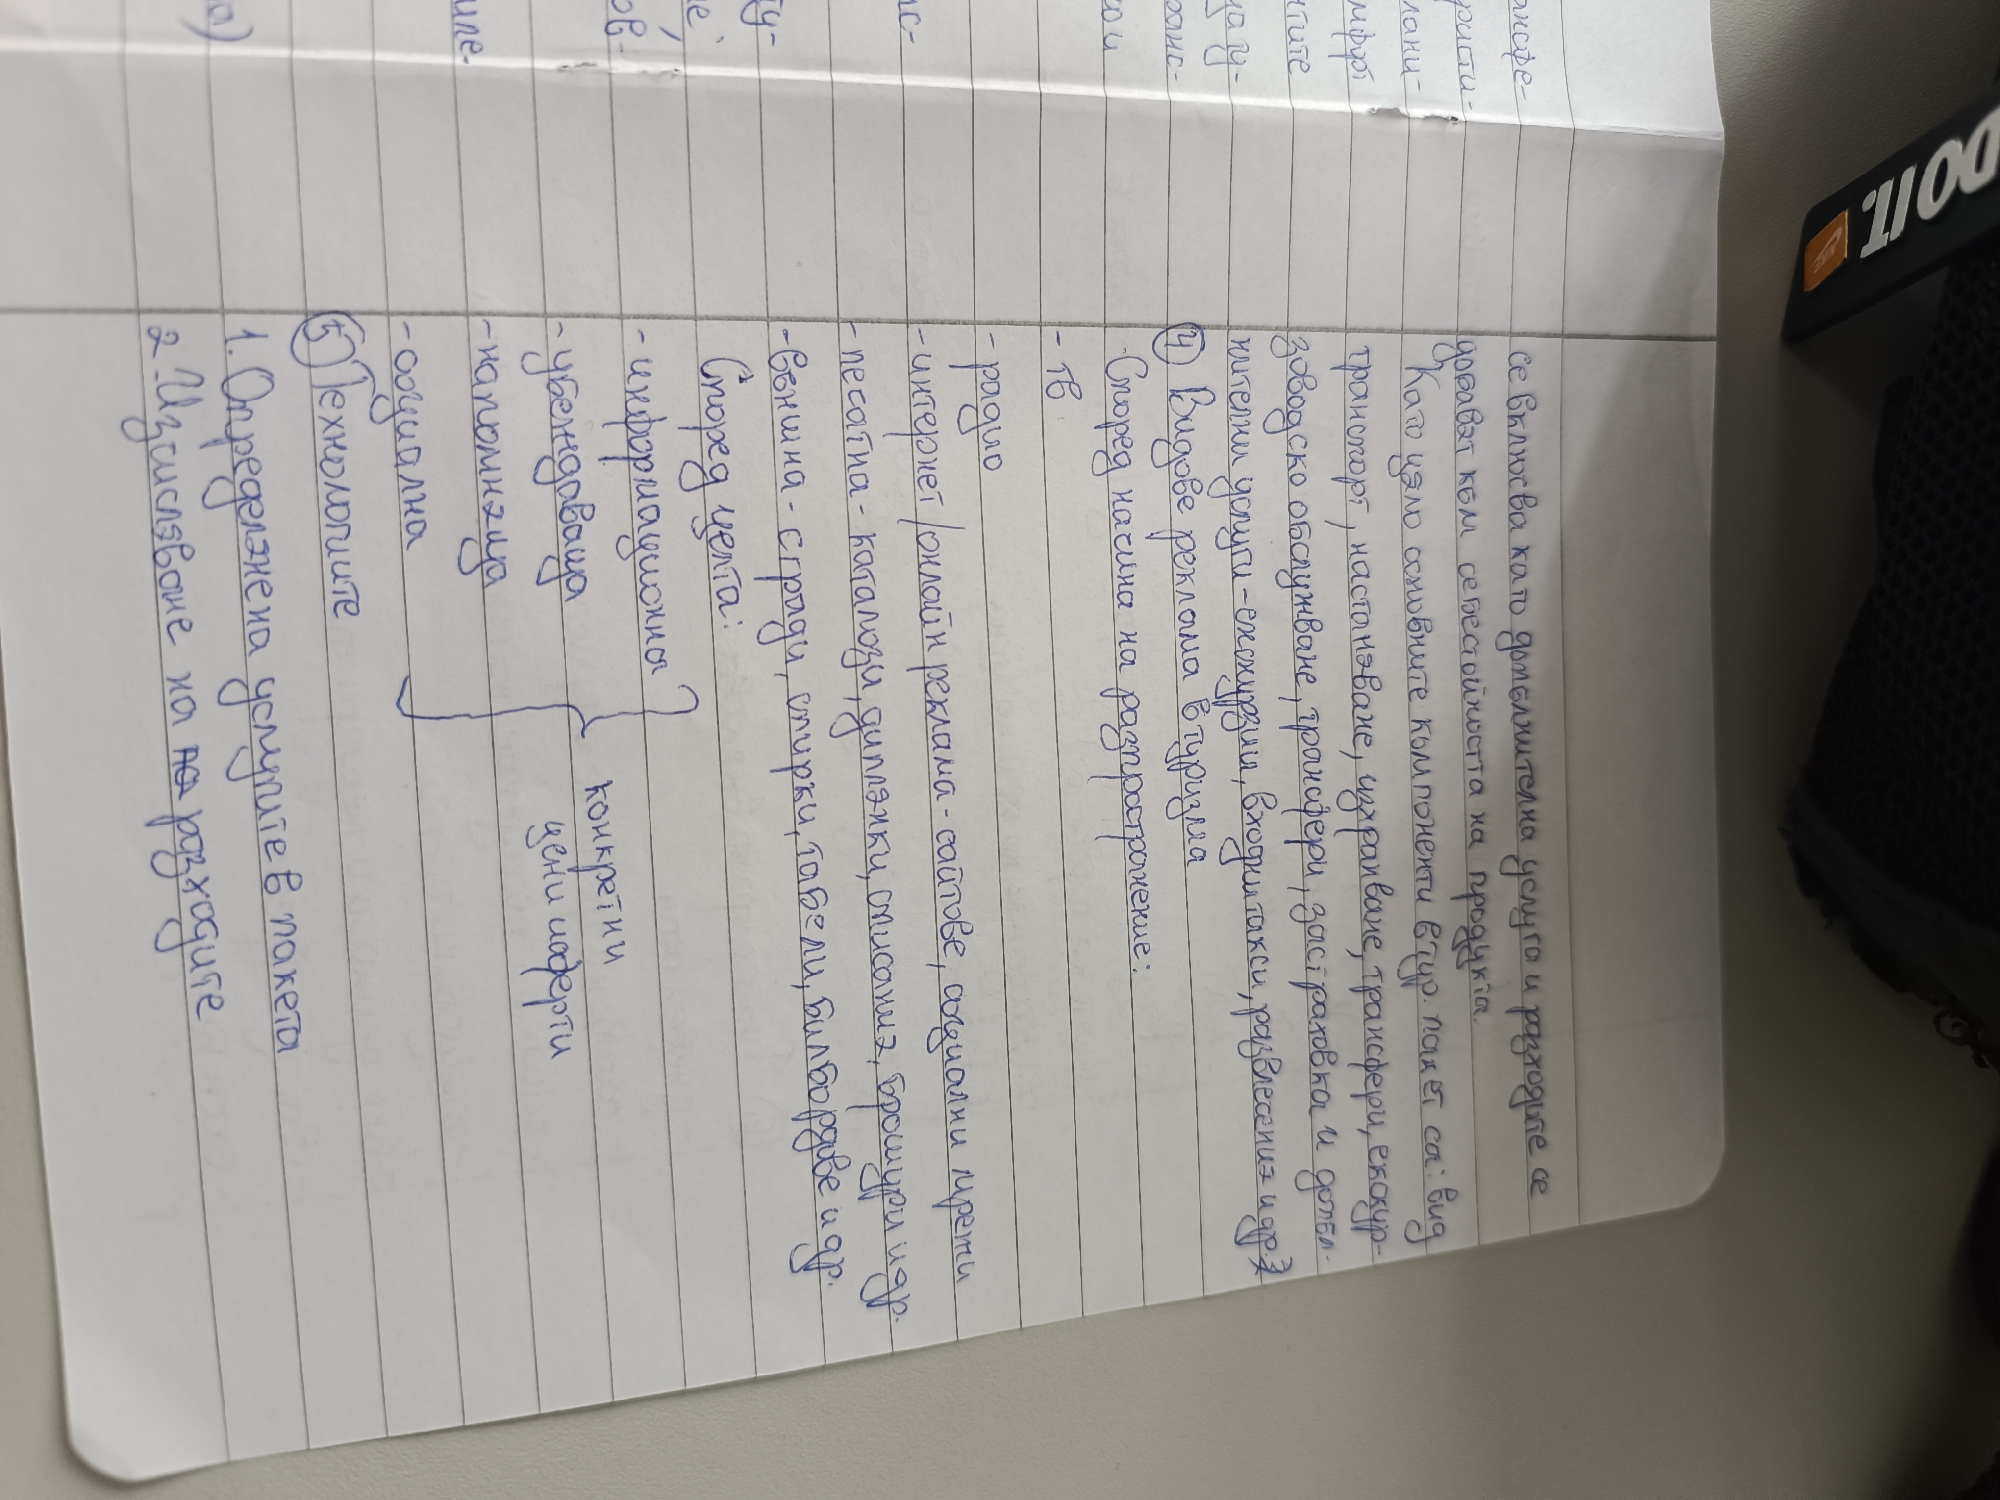 се включва като допълнителна услуга и разходите се
добавят към себестойността на продукта.
Като цяло основните компоненти в тур. пакет са: вид
транспорт, настаняване, изхранване, трансфери, екскур-
зоводско обслужване, трансфери, застраховка и допъл-
нителни услуги - екскурзии, входни такси, развлечения и др.
④ Видове реклама в туризма
Според начина на разпространение:
- ТВ
- радио
- интернет/онлайн реклама - сайтове, социални мрежи
- печатна - каталози, дипляжки, списания, брошури и др.
- външна - сгради, спирки, табели, билбордове и др.
Според целта:
- информационна
- убеждаваща
- напомняща
- социална
конкретни
цени и оферти
⑤ Технологиите
1. Определяне услугите в пакета
2. Изчисляване на разходите
ансфе-
ристи-
лани-
мфорт
нтите
ранс-
кои
ту-
ов-
иле-
а)
DO IT.